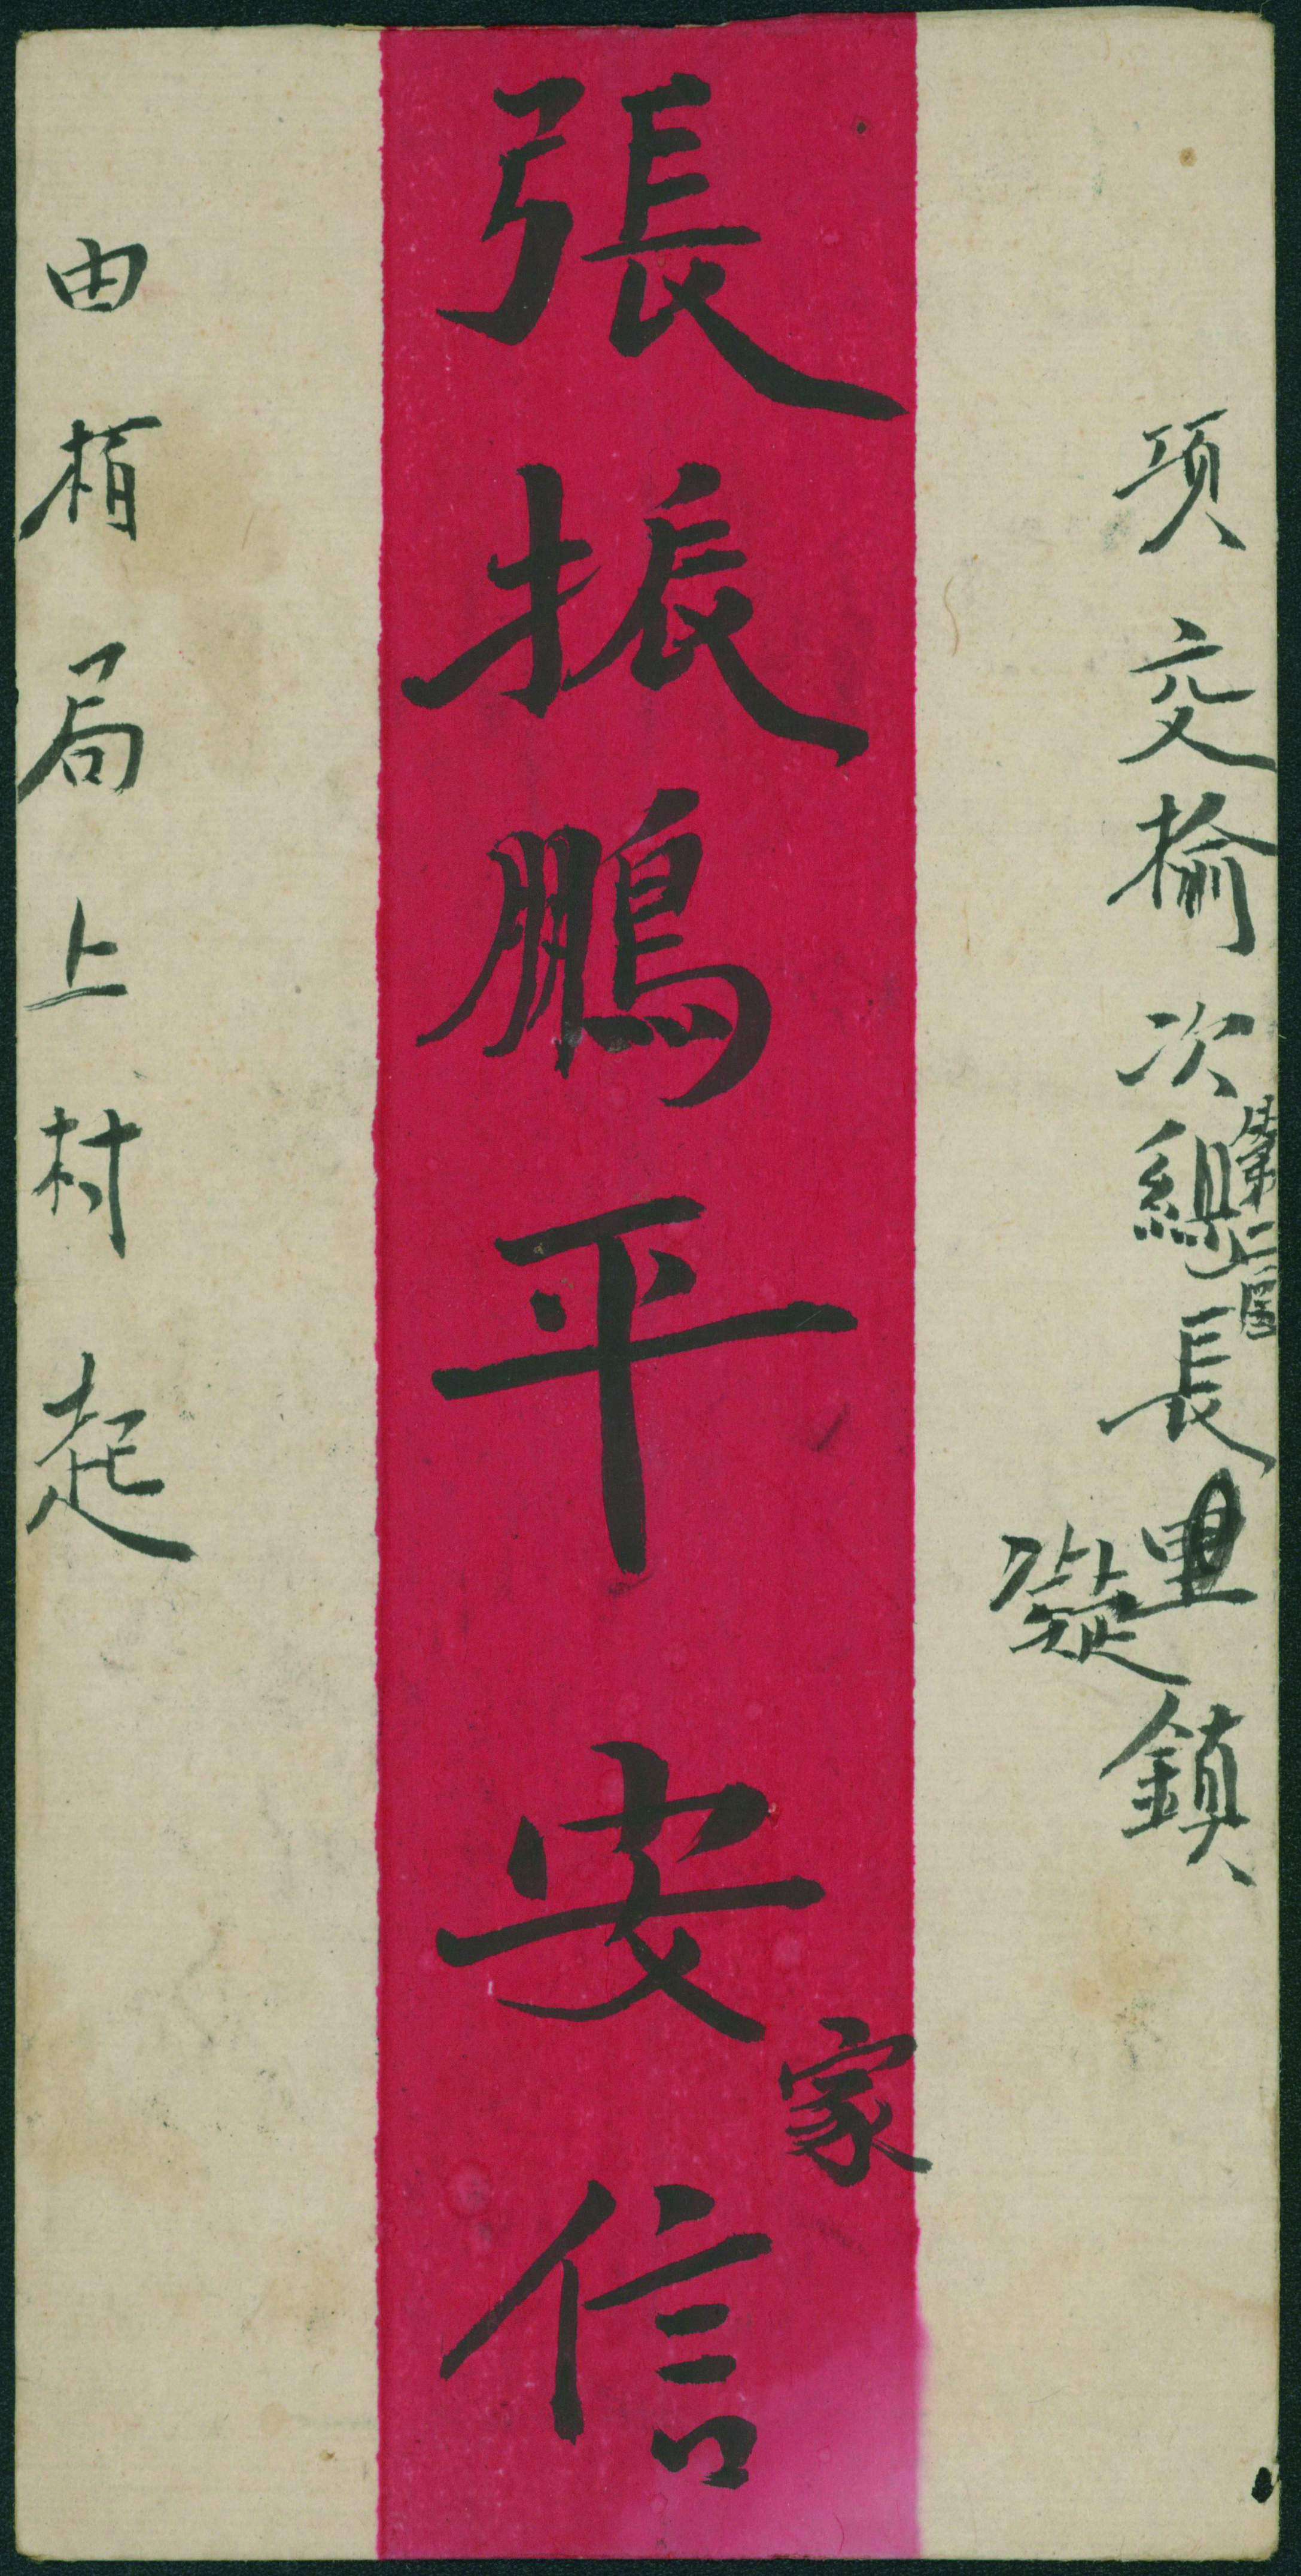 項交榆次縣第二區長凝鎮
張振鵬平安家信
由稍局上村起